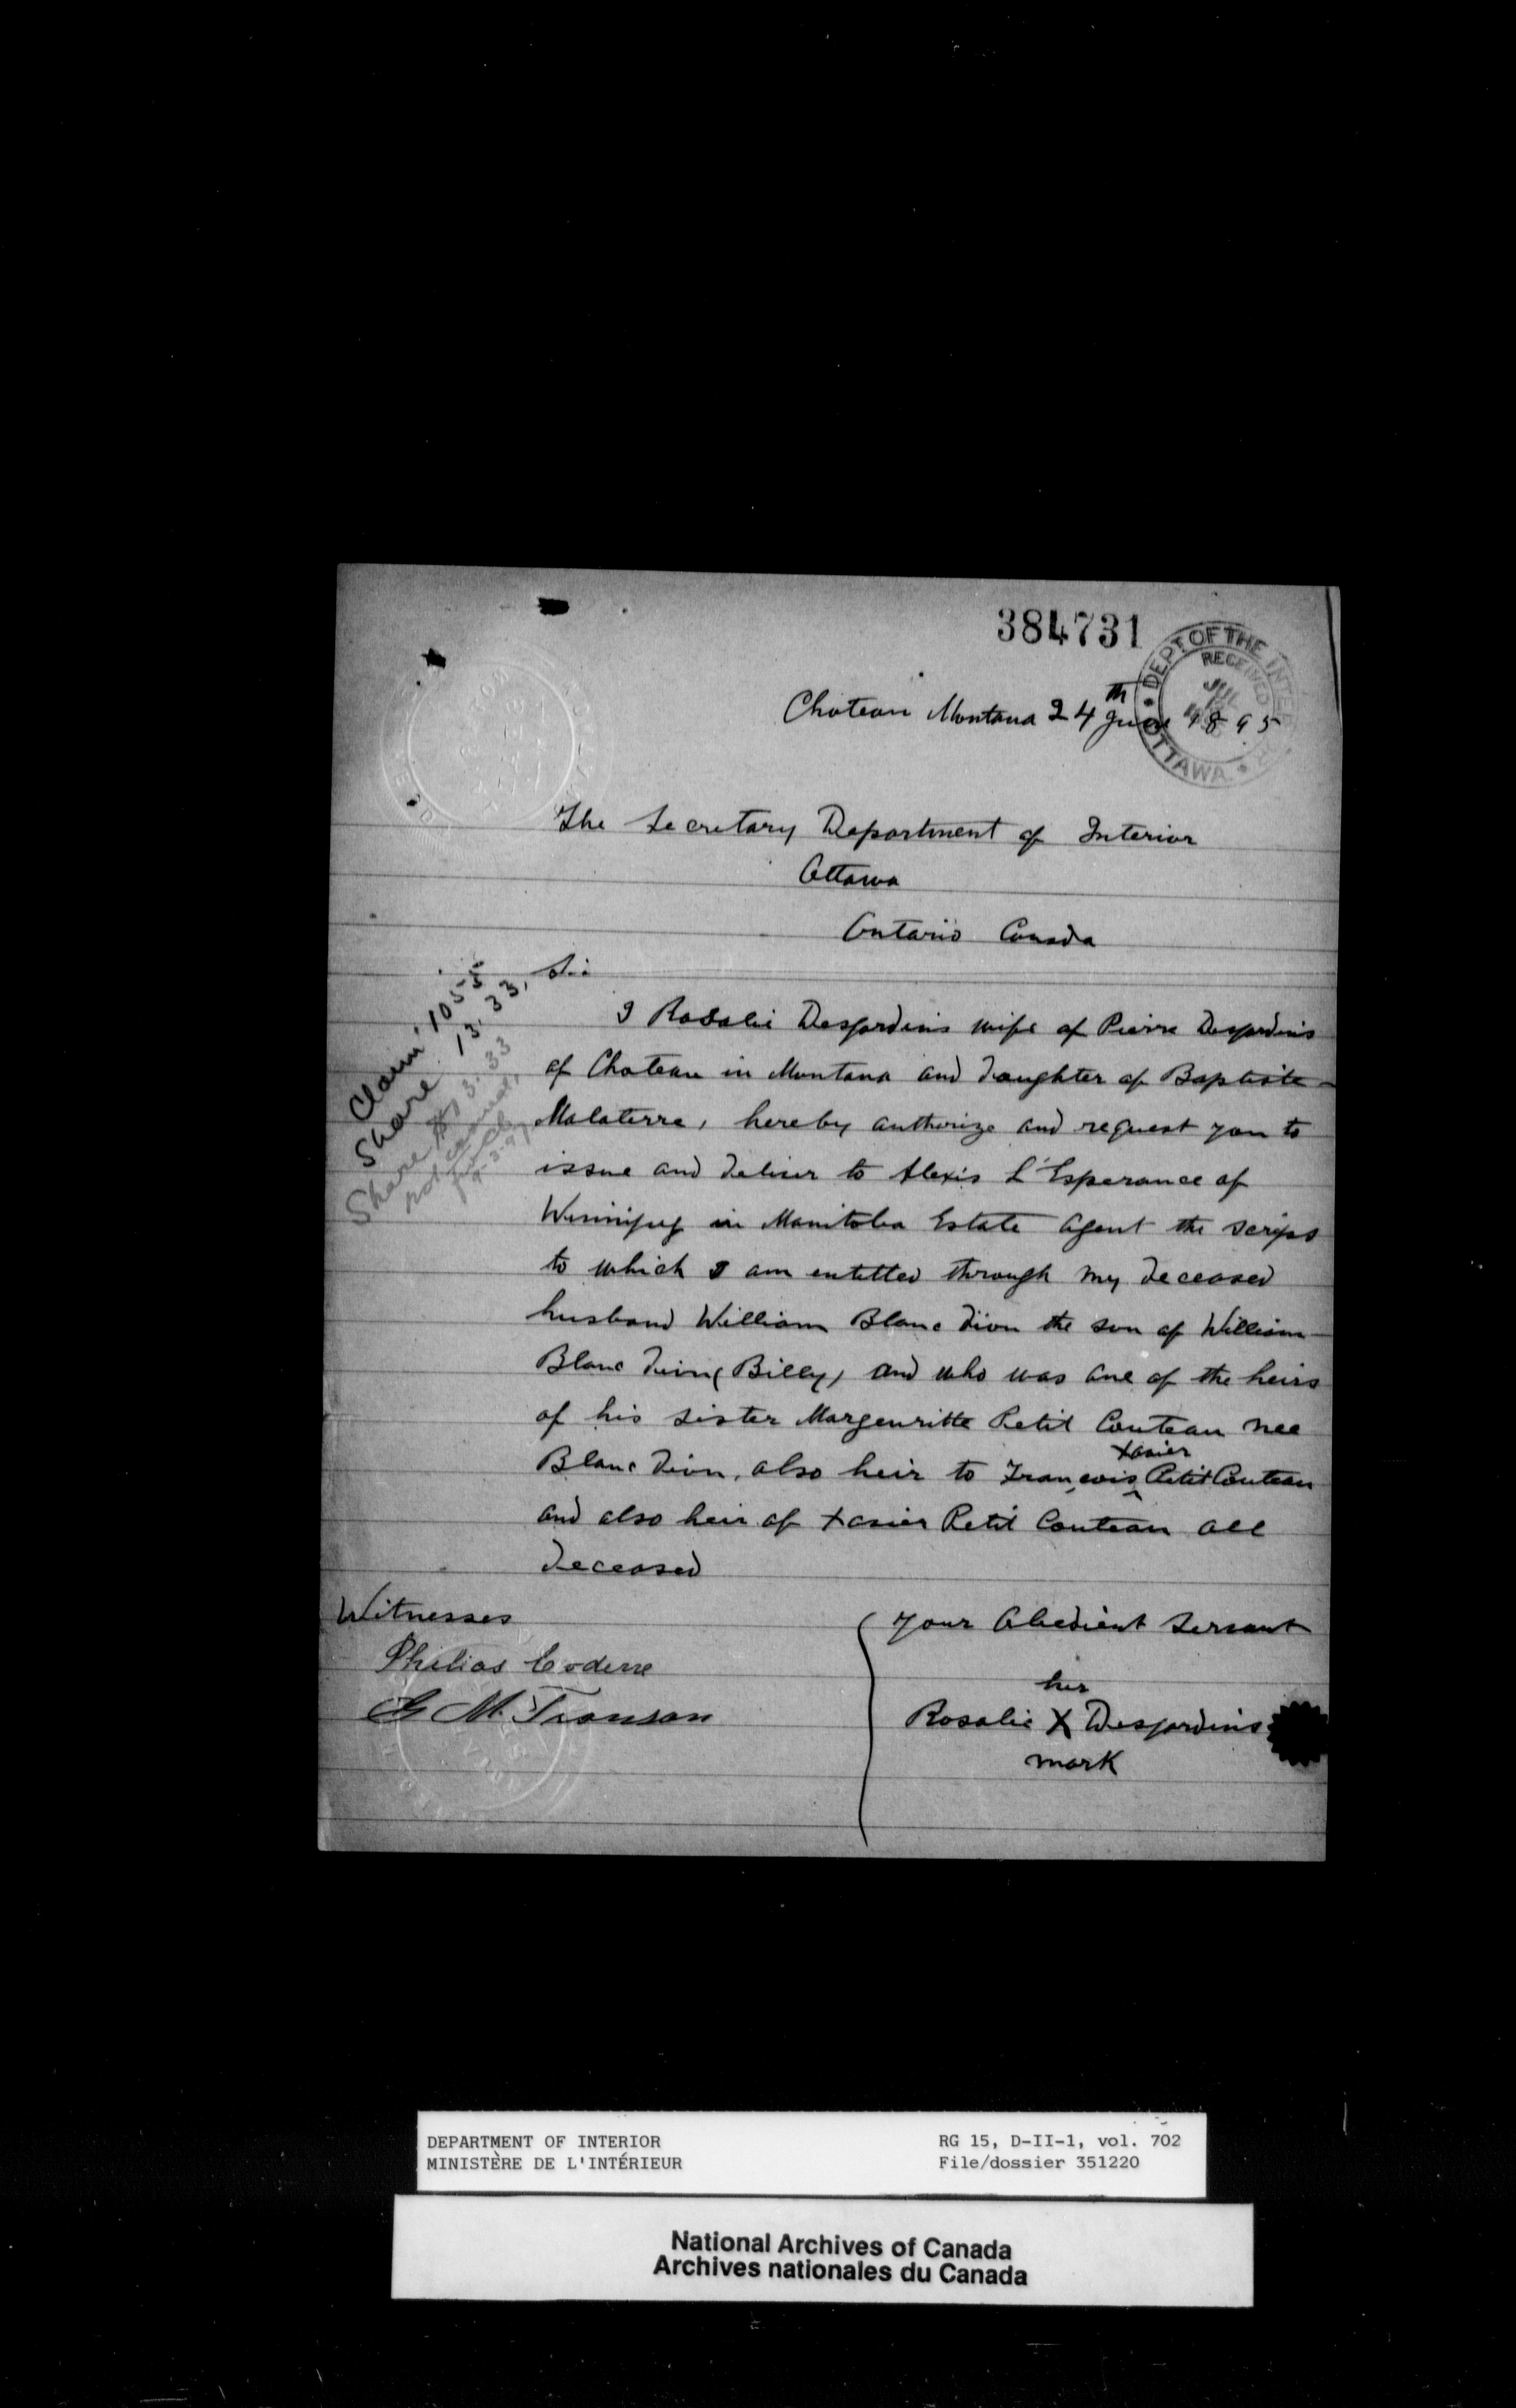 384731
DEPT. OF THE INTERIOR
RECEIVED
OTTAWA
Choteau Montana 24th June 1895
The Secretary Department of Interior
Ottawa
Ontario Canada
Sir
Claim 1055
Share 13.33,
Share $13.33
I Rosalie Desjardins wife of Pierre Desjardins
of Choteau in Montana and daughter of Baptiste
Malaterre, hereby authorize and request you to
issue and deliver to Alexis L'Esperance of
Winnipeg in Manitoba Estate Agent the scrips
to which I am entitled through my deceased
husband William Blanc Dion the son of William
Blanc Dion (Billy) and who was one of the heirs
of his sister Margeuritte Petit Couteau nee
Blanc Dion, also heir to François Xavier Petit Couteau
and also heir of Xavier Petit Couteau all
deceased
Witnesses
Philias Coderre
G M. Tronson
Your Obedient Servant
her
Rosalie X Desjardins
mark
DEPARTMENT OF INTERIOR
MINISTÈRE DE L'INTÉRIEUR
RG 15, D-II-1, vol. 702
File/dossier 351220
National Archives of Canada
Archives nationales du Canada